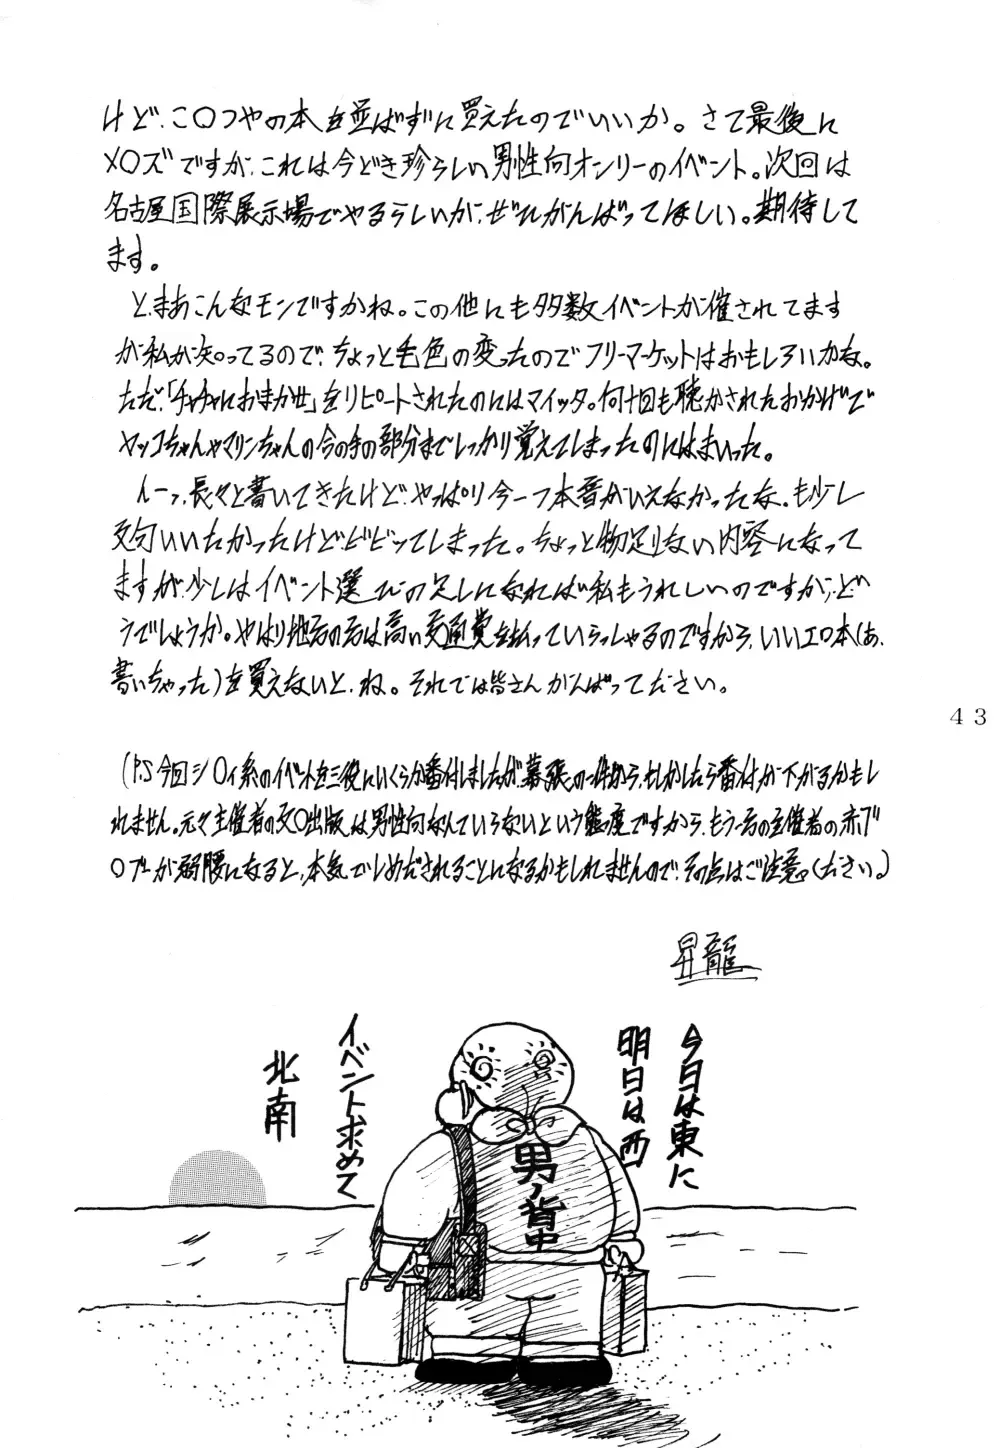 けど、こ〇つやの本を並ばずに買えたのでいいか。さて最後に
メ〇ズですが、これは今どき珍らしい男性向オンリーのイベント。次回は
名古屋国際展示場でやるらしいが、ぜひがんばってほしい。期待して
ます。
と、まあこんなモンですかね。この他にも多数イベントが催されてます
が私が知ってるので、ちょっと毛色の変ったのでフリーマーケットはおもしろいかな。
ただ、「チャチャにおまかせ」をリピートされたのにはマイッタ。何十回も聴かされたおかげで
ヤッコちゃんやマリンちゃんの今の手の部分までしっかり覚えてしまったのにはまいった。
んーっ、長々と書いてきたけど、やっぱり今一つ本音がいえなかったな。も少し
文句いいたかったけどビビッてしまった。ちょっと物足りない内容になって
ますが、少しはイベント選びの足しになれば私もうれしいのですが、ど
うでしょうか。やはり地方の方は高い交通費を払っていらっしゃるのですから、いいエロ本(あ、
書いちゃった)を買えないと、ね。それでは皆さんがんばってください。
(P.S 今回シ〇ィ系のイベントを三役にいくらか番付しましたが、幕張の一件から、もしかしたら番付が下がるかもし
れません。元々主催者の文〇出版は男性向なんていらないという態度ですから、もう一方の主催者の赤ブ
〇ブーが弱腰になると、本気でしめだされることになるかもしれませんので、その点はご注意ください。)
昇龍
今日は東に
明日は西
イベント求めて
北南
男ノ背中
43